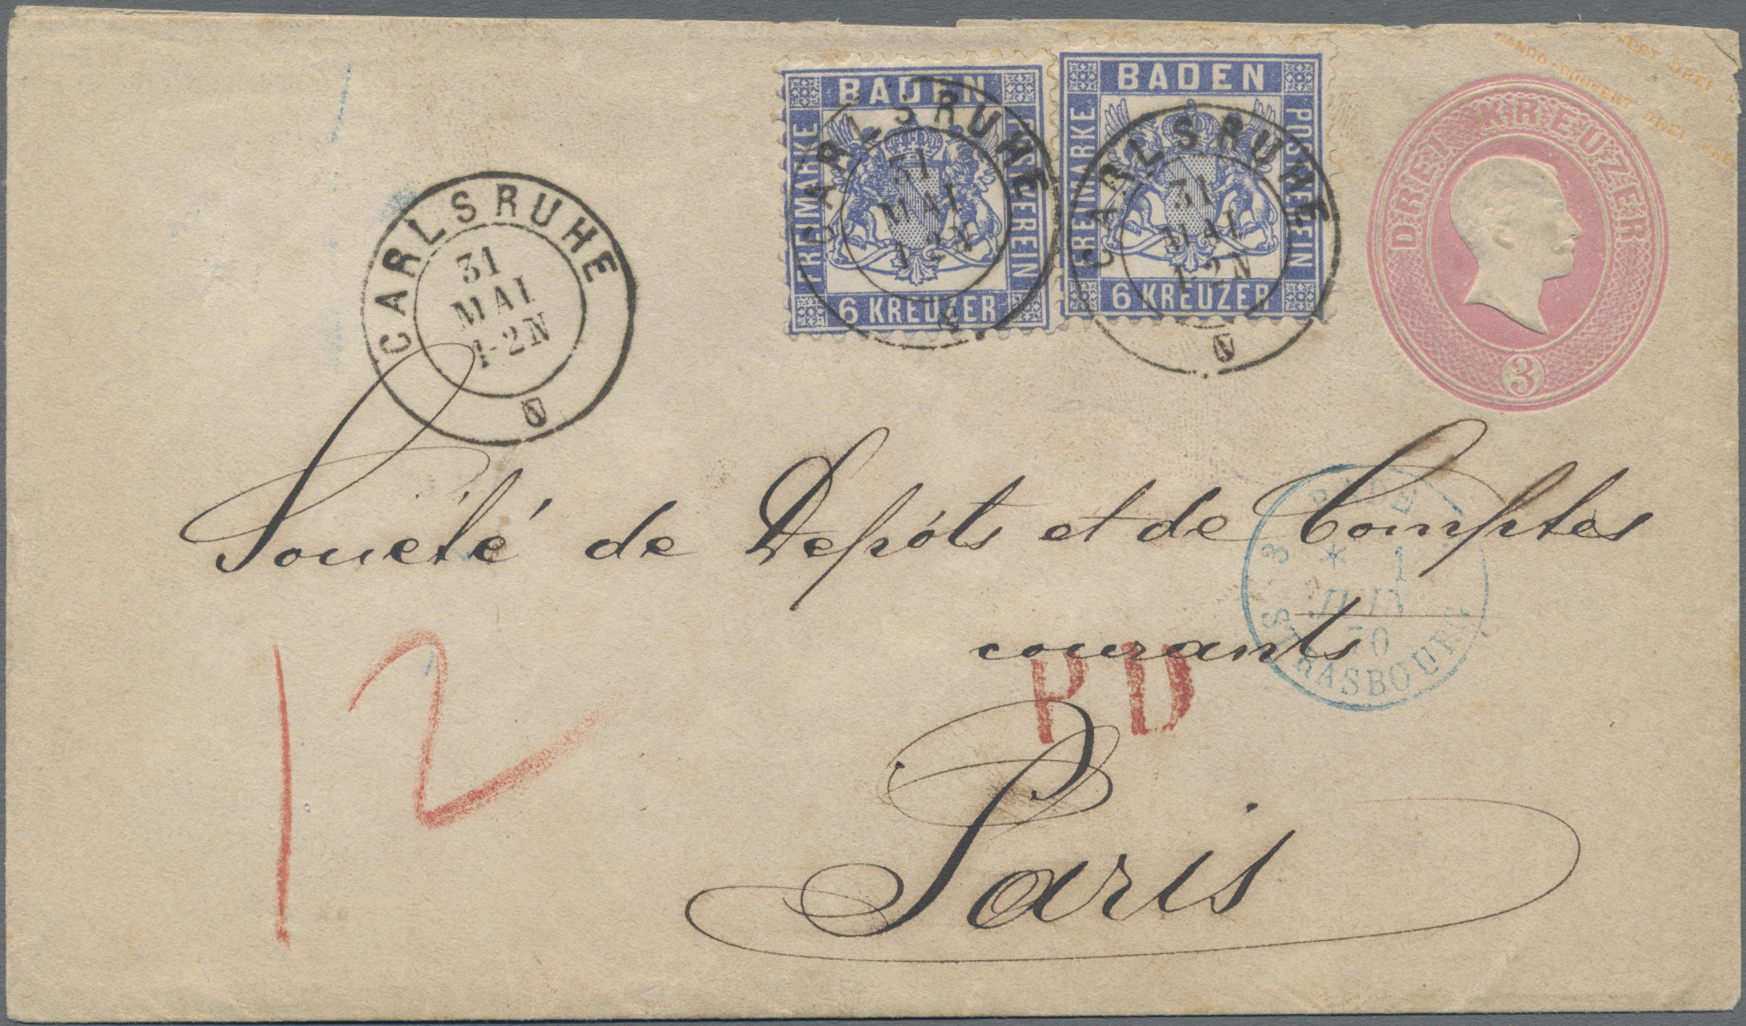 BADEN
FREIMARKE
POSTVEREIN
6 KREUZER
BADEN
FREIMARKE
POSTVEREIN
6 KREUZER
DREI KREUZER
3
CARLSRUHE
31
MAI
1-2N
CARLSRUHE
31
MAI
1-2N
CARLSRUHE
31
MAI
1-2N
Société de Depóts et de Comptes
courants
Paris
12
PD
BADE
3
1
JUIN
70
STRASBOURG